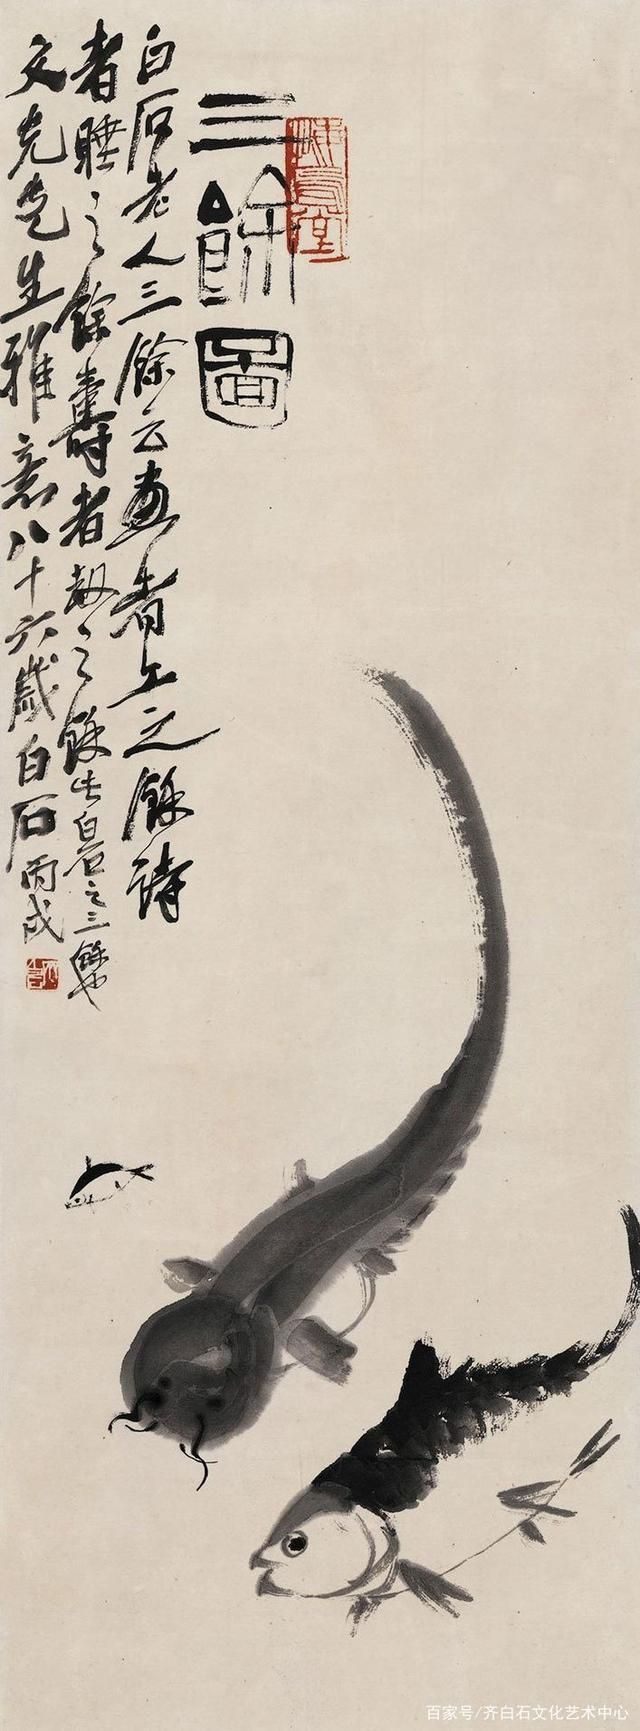 三餘圖
白石老人三餘云畫者工之餘詩
者睡之餘壽者劫之餘此白石之三餘也
文光先生雅意八十六歲白石丙戌
百家号/齐白石文化艺术中心